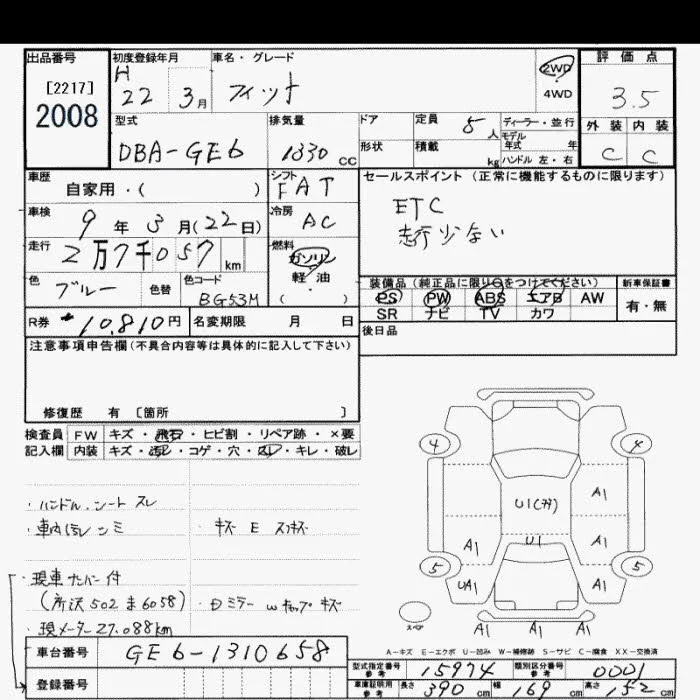 出品番号 初度登録年月 車名・グレード 評価点
[2217] H 22 3月 フィット 2WD 4WD 3.5
2008
型式 排気量 ドア 定員 5人 ディーラー・並行 外装 内装
DBA-GE6 1330 CC 形状 積載 kg モデル年式 年 C C
ハンドル 左・右
車歴 シフト セールスポイント (正常に機能するものに限ります)
自家用・( ) FAT ETC
車検 9年3月(22日) 冷房 AC 走行少ない
走行 2万7千057km 燃料 ガソリン 軽・油 ( )
色 ブルー 色替 色コード BG53M
装備品 (純正品に限り○をつけてください) 新車保証書
PS PW ABS エアB AW 有・無
SR ナビ TV カワ
R券 10,810円 名変期限 月 日 後日品
注意事項申告欄(不具合内容等は具体的に記入して下さい)
修復歴 有 [箇所 ]
検査員 FW キズ・飛石・ヒビ割・リペア跡・×要
記入欄 内装 キズ・汚レ・コゲ・穴・スレ・キレ・破レ
・ハンドル、シート スレ
・車内汚レ シミ ・キズ E スリキズ
・現車ナンバー付
(所沢 502 ま 6058) ・Dミラー wキャップ キズ
・現メーター27.088km
4 4
U1(オ) A1
A1 U1 A1
5 5
UA1 A1
スペア A1 A1 A1
A-キズ E-エクボ U-凹み W-補修跡 S-サビ C-腐食 XX-交換済
車台番号 GE6-1310658
登録番号
型式指定番号 参考 15974 類別区分番号 参考 0001
車庫証明用 参考 長さ 390 cm 幅 169 cm 高さ 152 cm